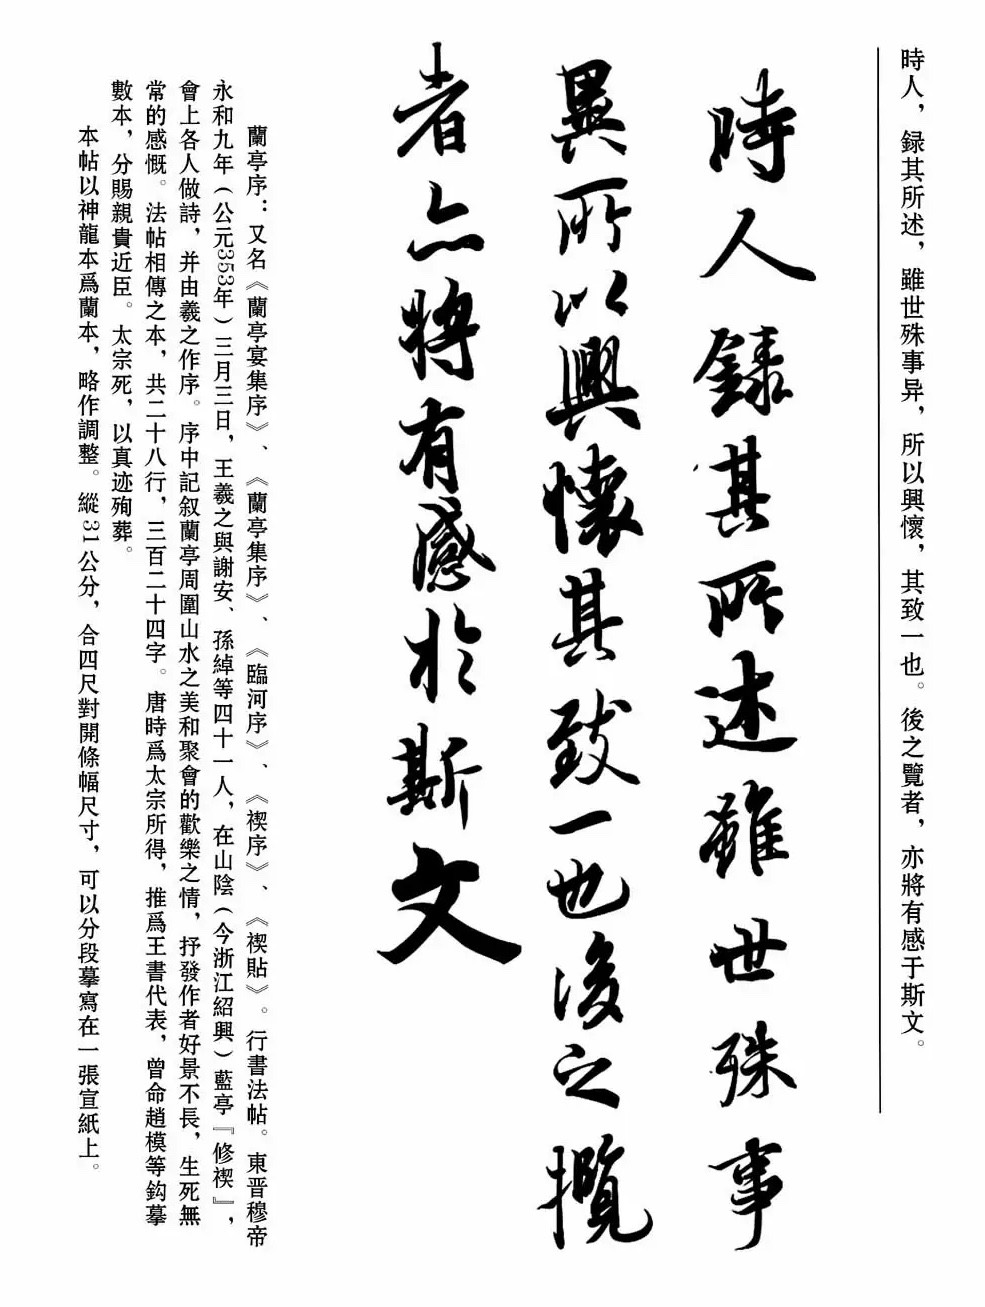 時人，録其所述，雖世殊事异，所以興懷，其致一也。後之覽者，亦將有感于斯文。
時人録其所述雖世殊事
異所以興懷其致一也後之攬
者亦將有感於斯文
蘭亭序：又名《蘭亭宴集序》、《蘭亭集序》、《臨河序》、《禊序》、《禊貼》。行書法帖。東晋穆帝
永和九年（公元353年）三月三日，王羲之與謝安、孫綽等四十一人，在山陰（今浙江紹興）藍亭『修禊』，
會上各人做詩，并由羲之作序。序中記叙蘭亭周圍山水之美和聚會的歡樂之情，抒發作者好景不長，生死無
常的感慨。法帖相傳之本，共二十八行，三百二十四字。唐時爲太宗所得，推爲王書代表，曾命趙模等鈎摹
數本，分賜親貴近臣。太宗死，以真迹殉葬。
本帖以神龍本爲蘭本，略作調整。縱31公分，合四尺對開條幅尺寸，可以分段摹寫在一張宣紙上。